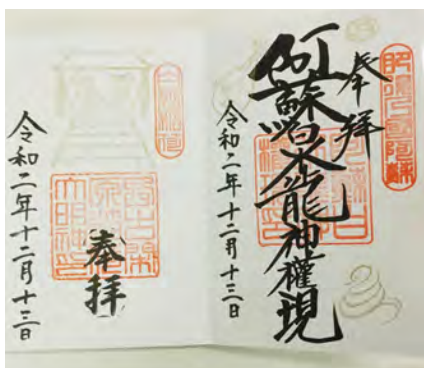 肥後乃國阿蘇
奉拝
阿蘇白水龍神權現
令和二年十二月十三日
奉拝
令和二年十二月十三日